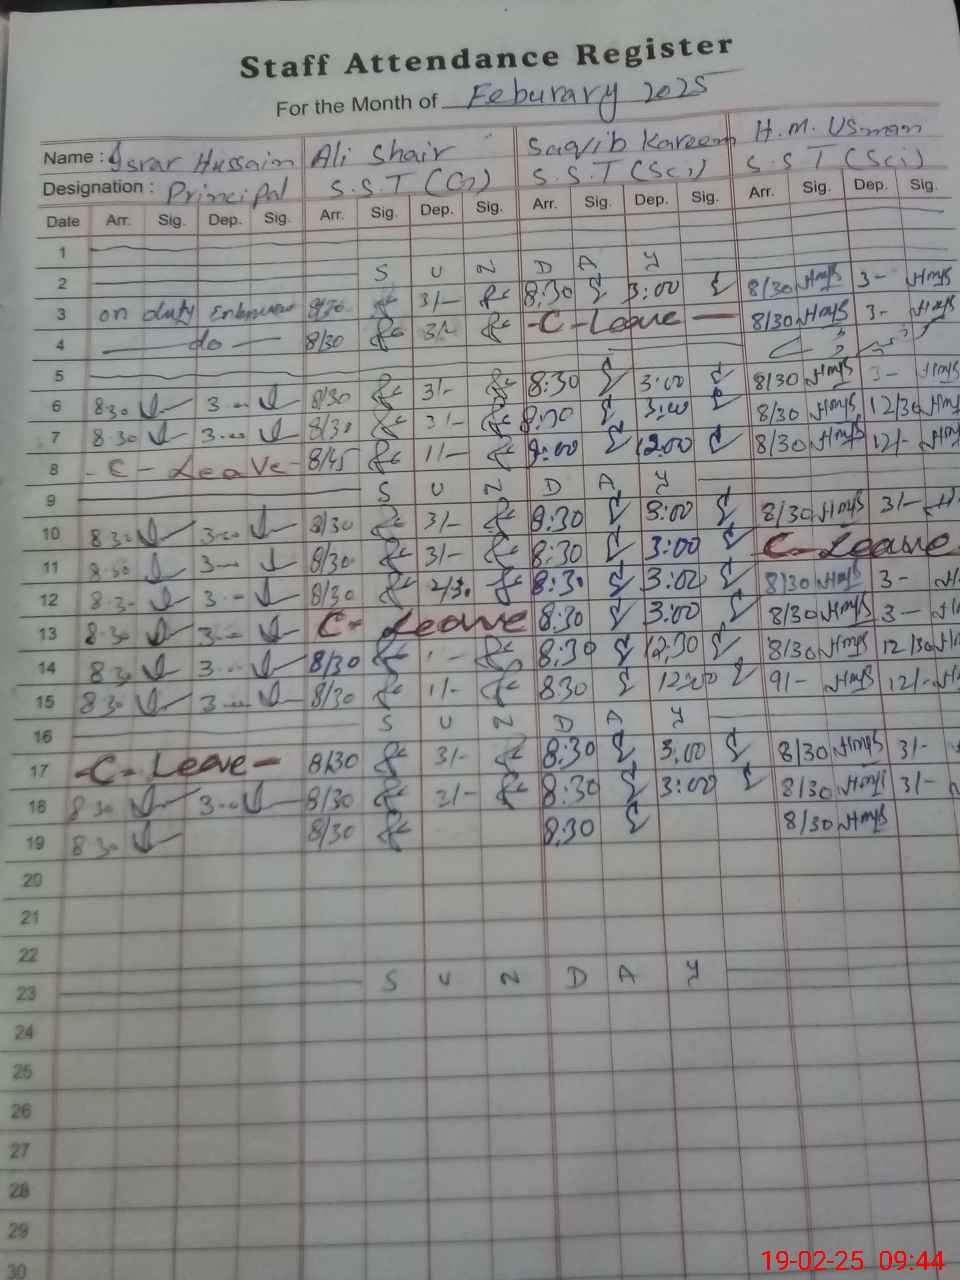 Staff Attendance Register
For the Month of Feburary 2025
Name : Israr Hussain Ali Shair Saqib Kareem H.M. Usman
Designation : Principal S.S.T (G) S.S.T (Sci) S.S.T (Sci)
Date Arr. Sig. Dep. Sig. Arr. Sig. Dep. Sig. Arr. Sig. Dep. Sig. Arr. Sig. Dep. Sig.
1
2 S U N D A Y
3 on duty 8/30 3/- 8:30 3:00 8/30 3-
4 do 8/30 3/- -C-Leave- 8/30 3-
5
6 8.30 3.00 8/30 3/- 8:30 3:00 8/30 3-
7 8.30 3.00 8/30 3/- 8:30 3:00 8/30 12/30
8 -C-Leave- 8/45 1/- 12:00 8/30 12/-
9 S U N D A Y
10 8.30 3.00 8/30 3/- 8:30 3:00 8/30 3/-
11 8.30 3 8/30 3/- 8:30 3:00 C-Leave
12 8.3 3 8/30 2/30 8:30 3:00 8/30 3-
13 8.30 3 C-Leave 8:30 3:00 8/30 3-
14 8.30 3 8/30 8:30 12:30 8/30 12/30
15 8.30 3 8/30 1/- 830 12:00 9/- 12/-
16 S U N D A Y
17 -C-Leave- 8/30 3/- 8:30 3:00 8/30 3/-
18 8.30 3.00 8/30 3/- 8:30 3:00 8/30 3/-
19 8.30 8/30 8:30 8/30
20
21
22
23 S U N D A Y
24
25
26
27
28
29
30
19-02-25 09:44